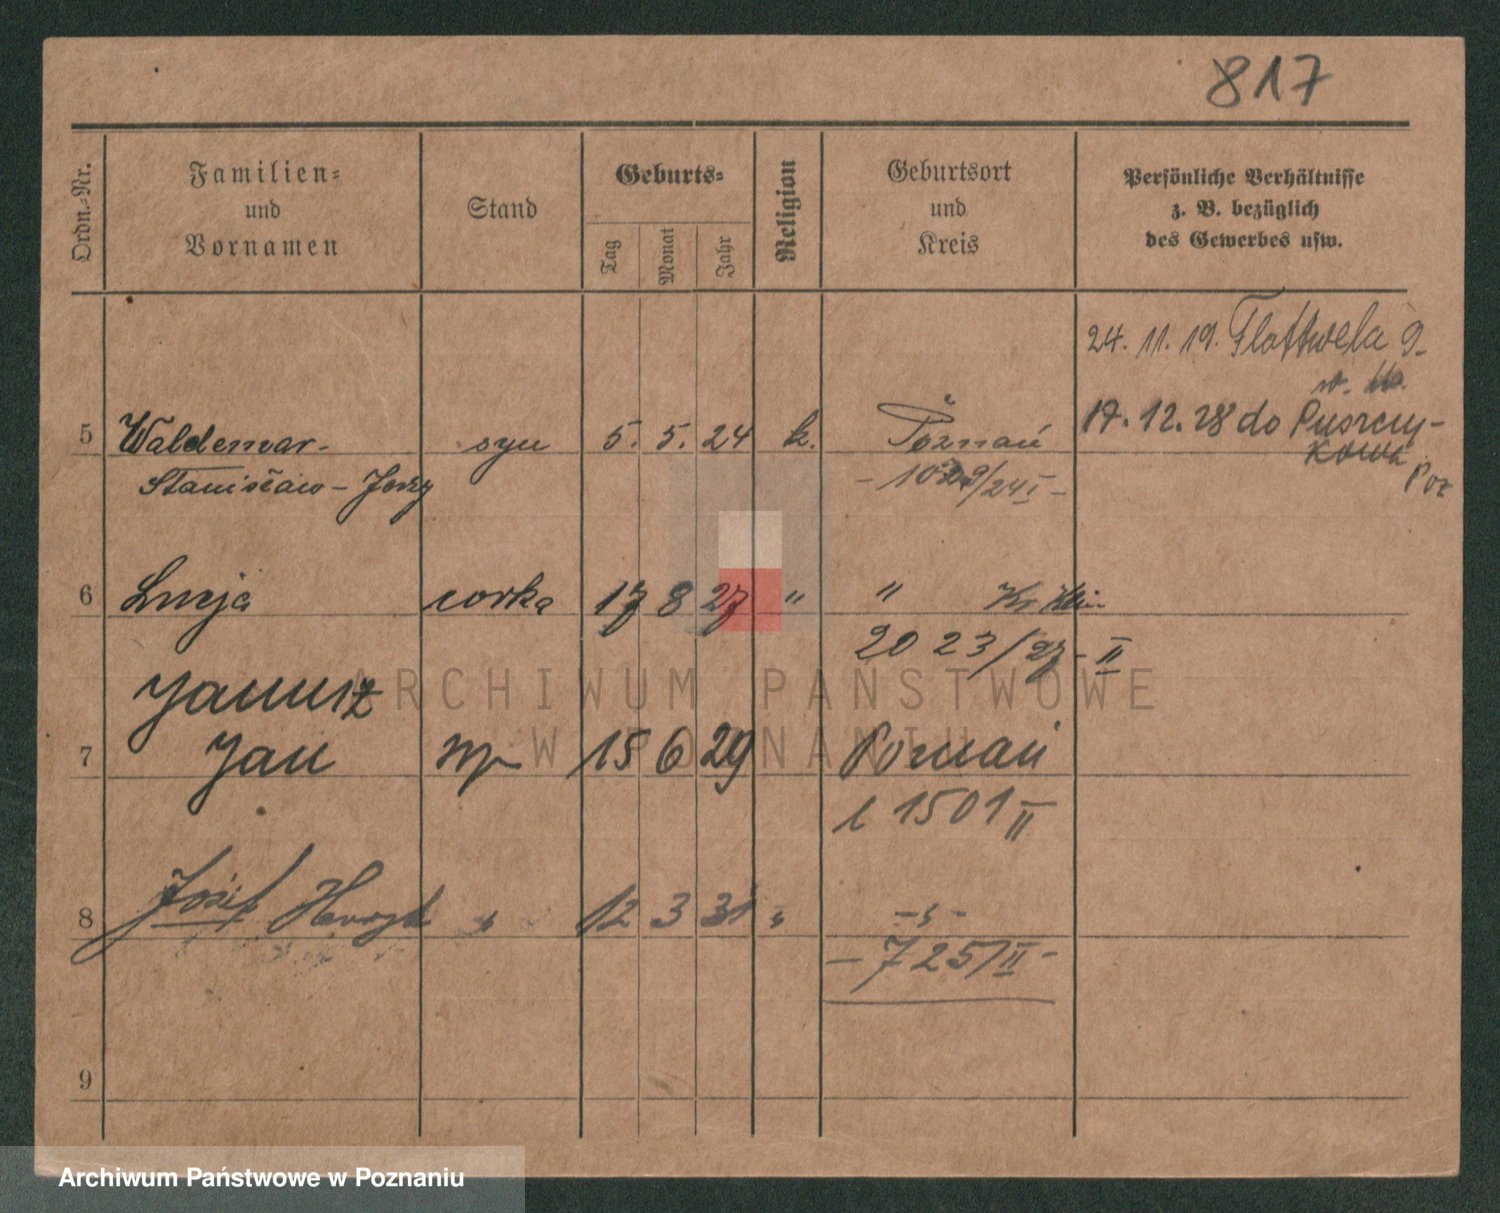 817
Ordn.-Nr.
Familien-
und
Vornamen
Stand
Geburts-
Tag
Monat
Jahr
Religion
Geburtsort
und
Kreis
Persönliche Verhältnisse
z. B. bezüglich
des Gewerbes usw.
24. 11. 19. Flottwela 9
17. 12. 28 do Puszczy-
kowa
Poz
5 Waldemar- syn 5. 5. 24 k. Poznań
Stanisław - Jerzy /24 I -
6 Lucja corka 17 8 27 " "
2023/27 - II
Janusz
7 Jan syn 15 6 29 Poznań
1501 II
8 Józef Henryk " 12 3 31 " - " -
- 725/II -
9
ARCHIWUM PAŃSTWOWE
W POZNANIU
Archiwum Państwowe w Poznaniu